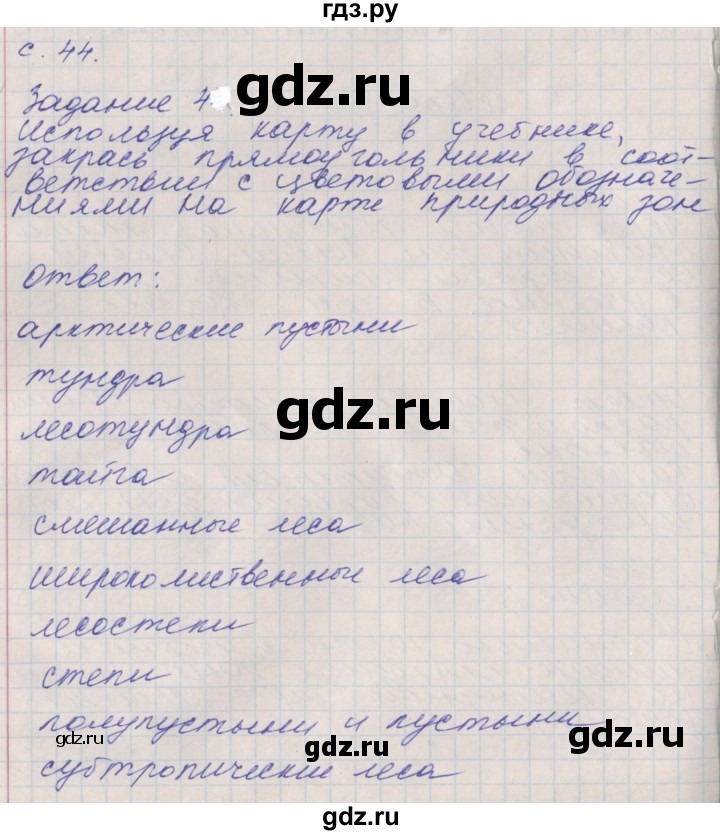 гдз.ру
с. 44.
gdz.ru
Задание 4
Используя карту в учебнике,
закрась прямоугольники в соот-
ветствии с цветовыми обозначе-
ниями на карте природных зон
ответ:
арктические пустыни
тундра
gdz.ru
лесотундра
тайга
смешанные леса
широколиственные леса
лесостепи
степи
полупустыни и пустыни
gdz.ru
gdz.ru
gdz.ru
субтропические леса
gdz.ru